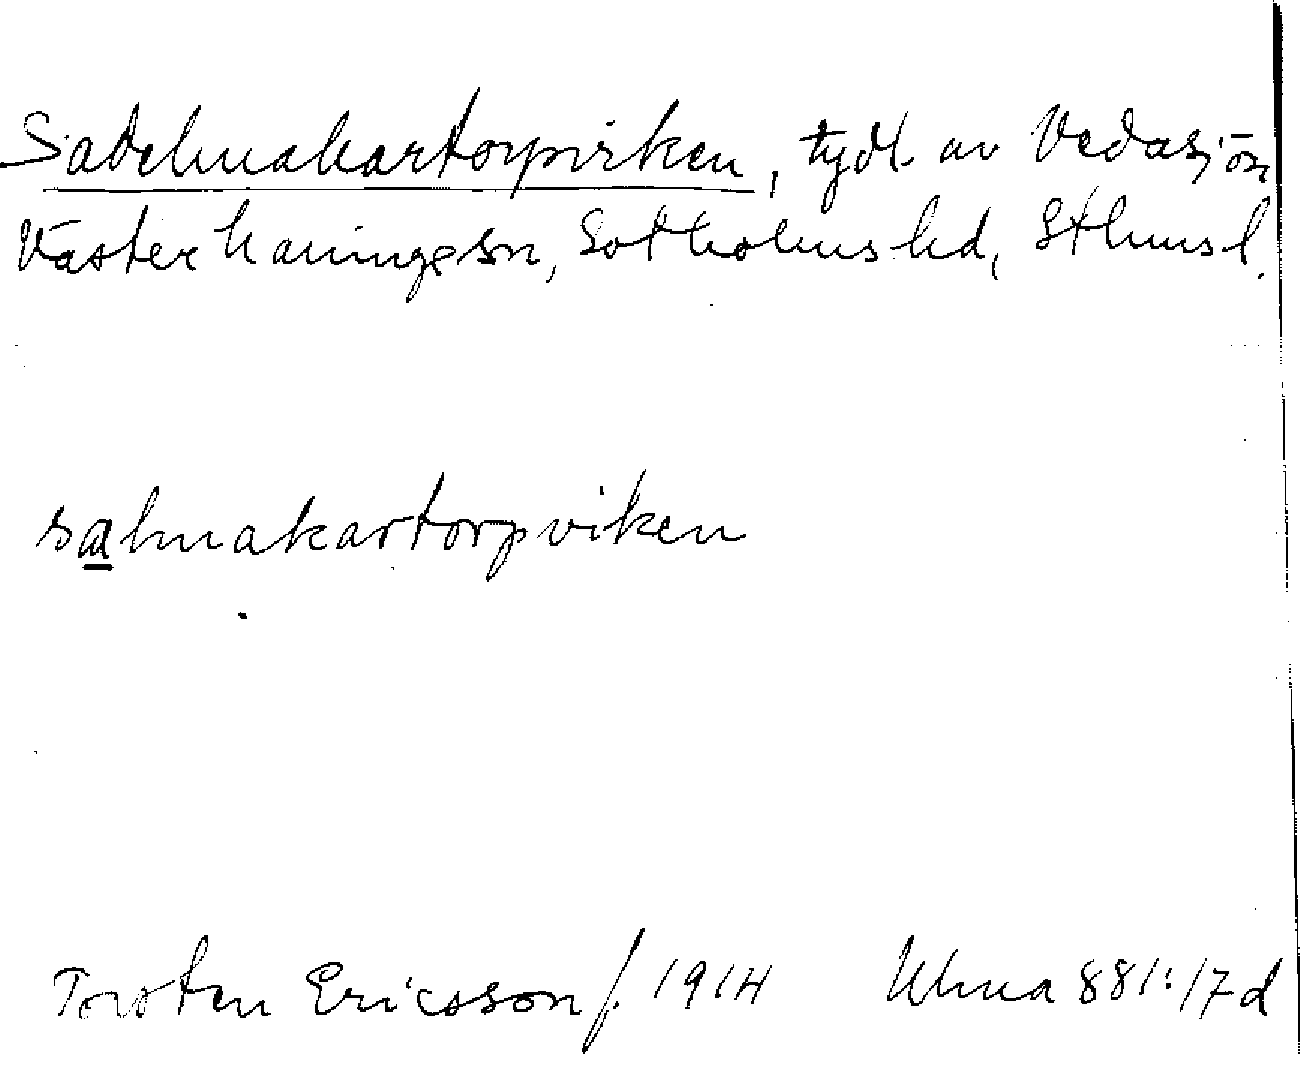 Sadelmakartorpviken, tydl. av Vedasjön
Västerhaninge sn, Sotholms hd, Sthms l.
salmakartorpviken
Torsten Ericsson f. 1914 Ulma 881:17d